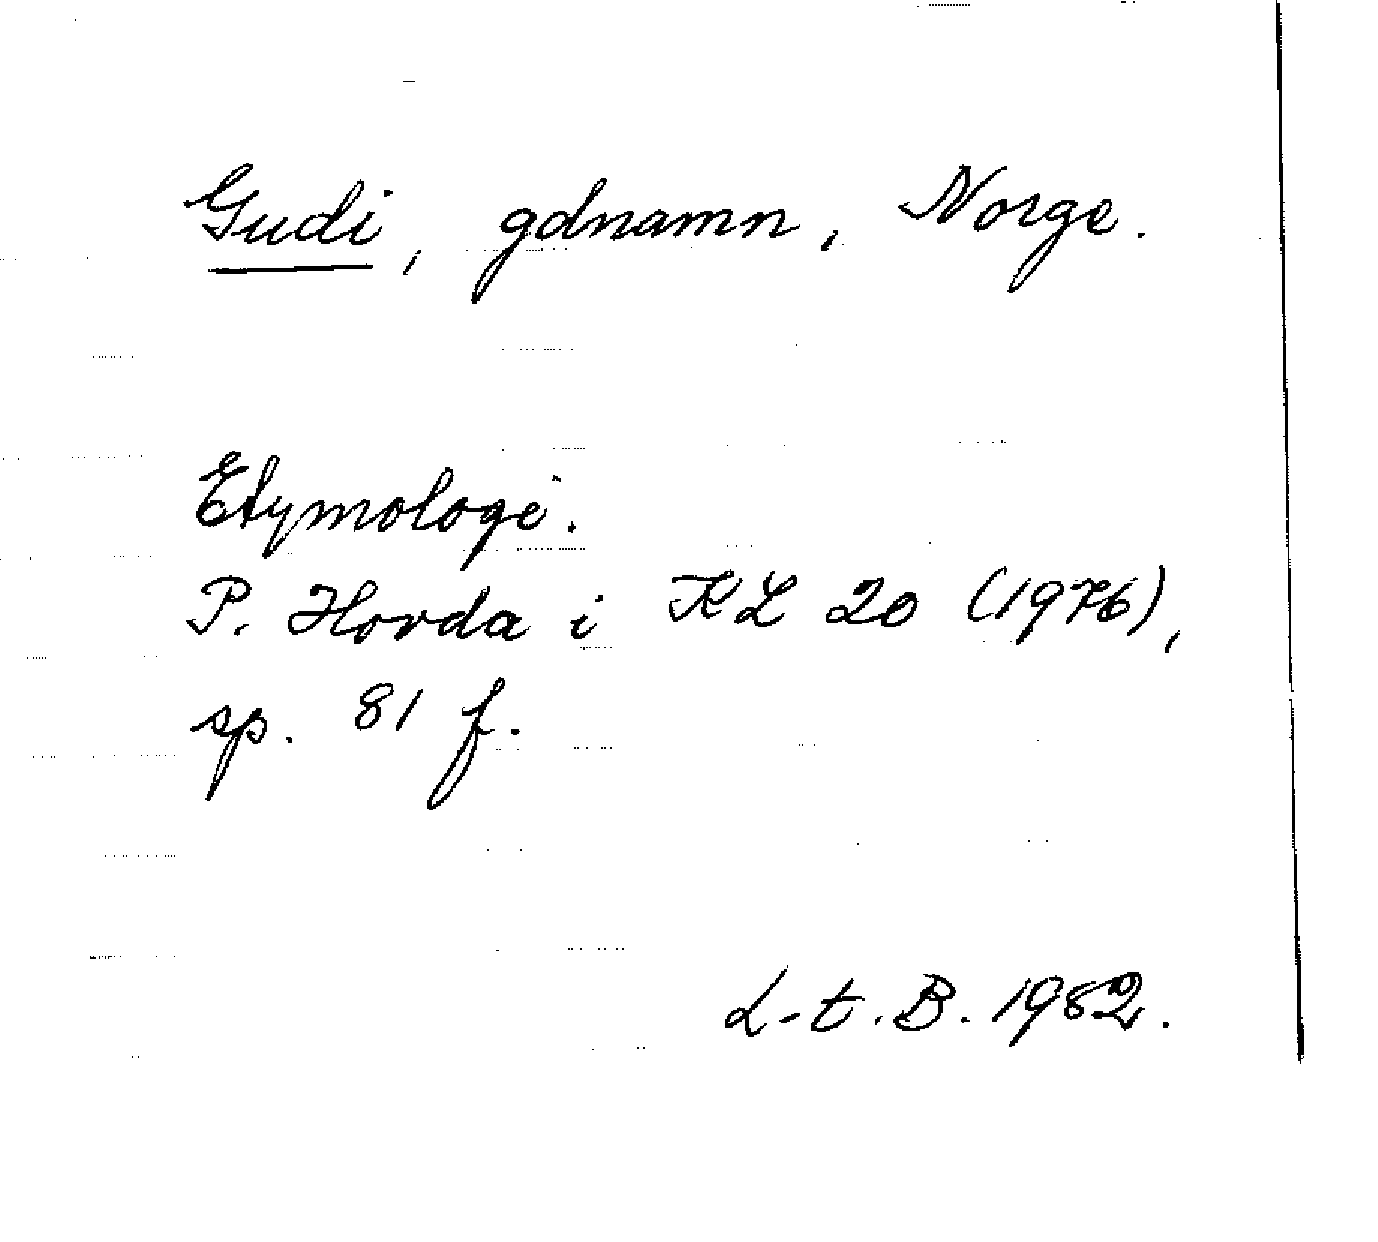 Gudi, gdnamn, Norge.
Etymologi.
P. Hovda i KL 20 (1976),
sp. 81 f.
L-t. B. 1982.